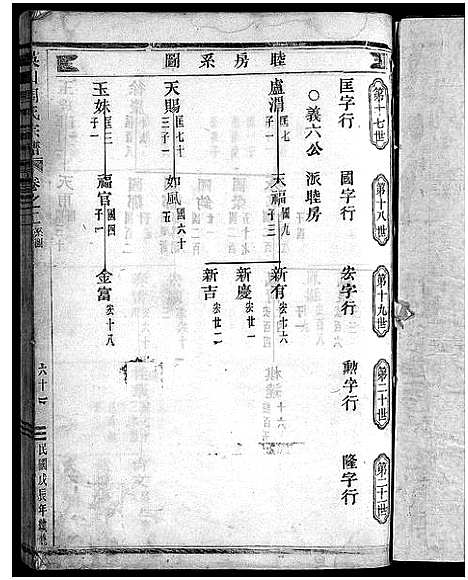 睦房系圖
第十七世
第十八世
第十九世
第二十世
第二十一世
匡字行
國字行
宏字行
勲字行
隆字行
○義六公 派睦房
盧渭 匡七 子一
天福 國九 子三
新有 宏十六
新慶 宏廿一
新吉 宏廿二
天賜 匡七十 三子一
如風 國六十五
玉妹 匡三 子一
福官 國四 子一
金富 宏十八
氏宗譜 卷之二 系圖
六十
民國戊辰年